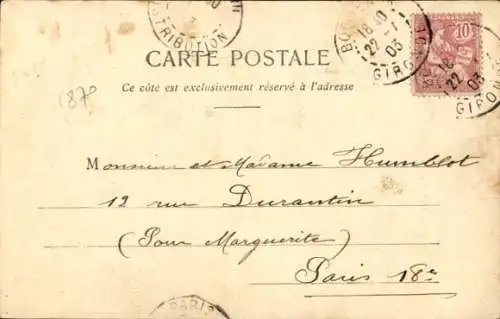 DISTRIBUTION
BORDEAUX
18 30
22 -1
03
GIRONDE
10
CARTE POSTALE
Ce côté est exclusivement réservé à l'adresse
1870
Monsieur et Madame Humblot
12 rue Durantin
(Pour Marguerite)
Paris 18e
PARIS